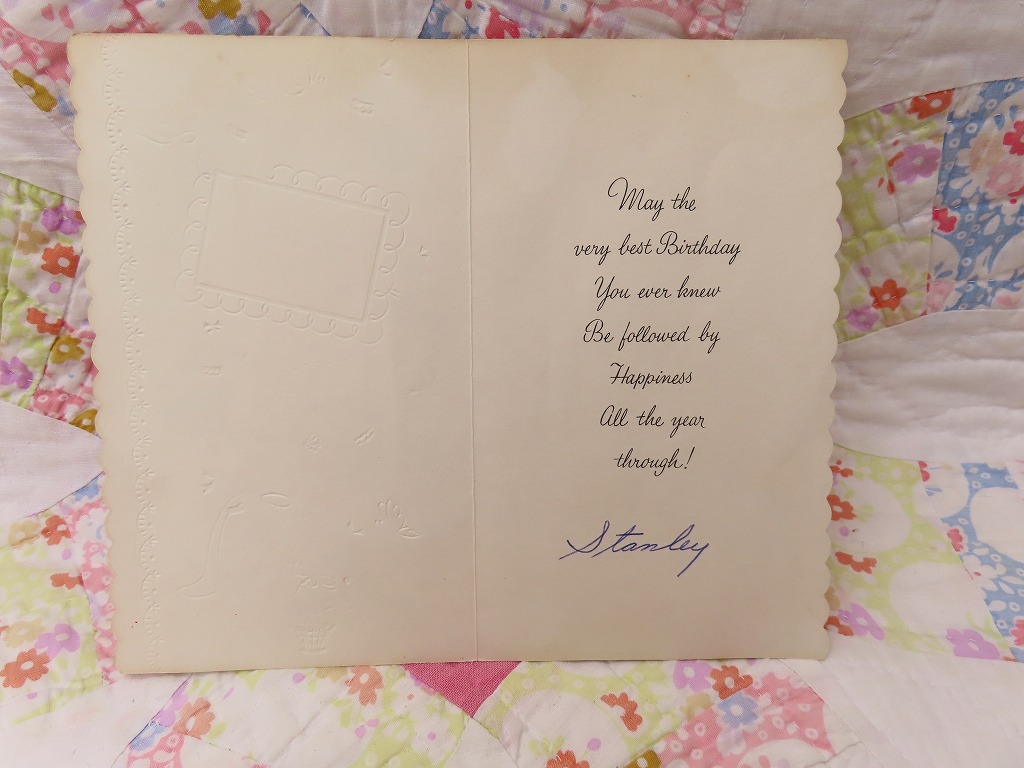 May the
very best Birthday
You ever knew
Be followed by
Happiness
All the year
through!
Stanley